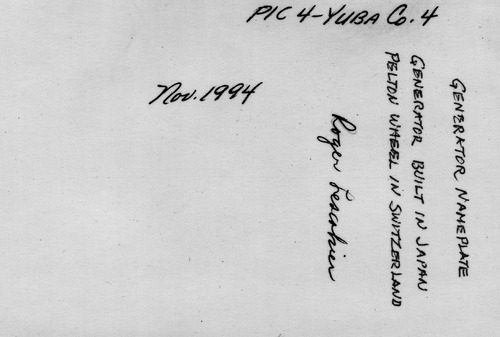 PIC 4-YUBA CO. 4
Nov. 1994
GENERATOR NAMEPLATE
GENERATOR BUILT IN JAPAN
PELTON WHEEL IN SWITZERLAND
Roger Lescohier